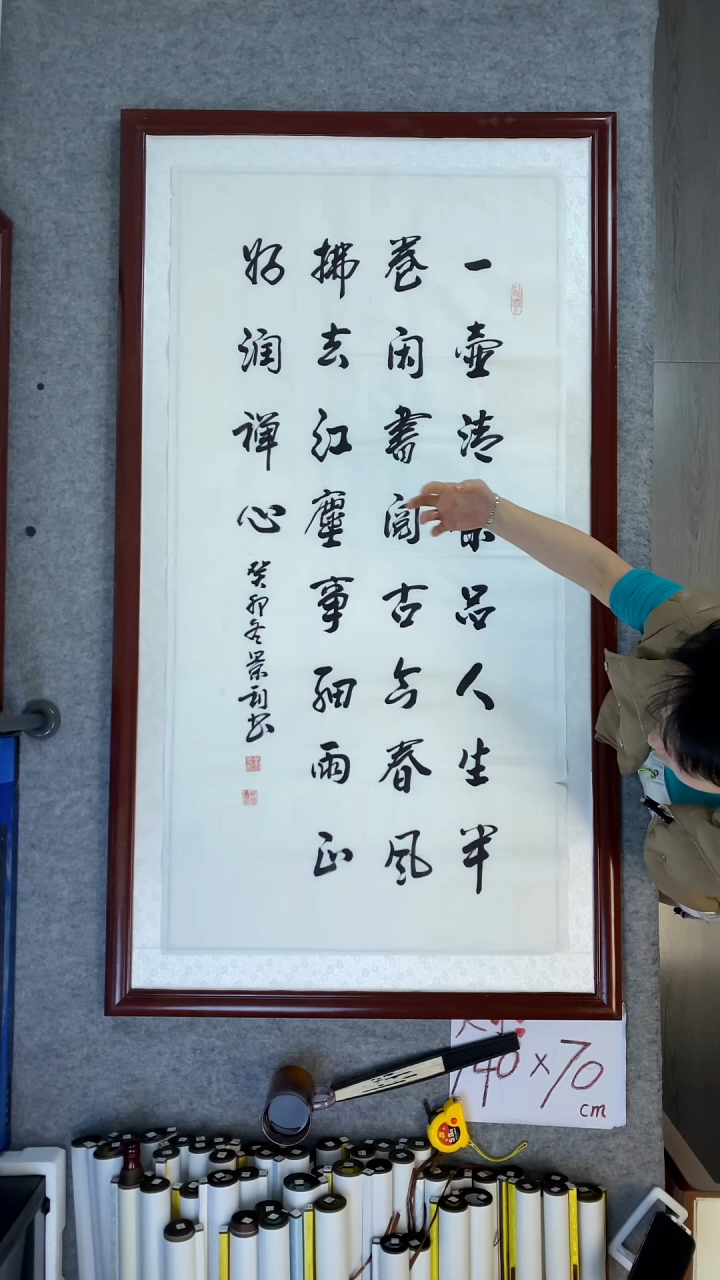 一壶清茶品人生半
卷闲书阅古今春风
拂去红尘事细雨正
好润禅心
癸卯冬景利书
140×70
cm